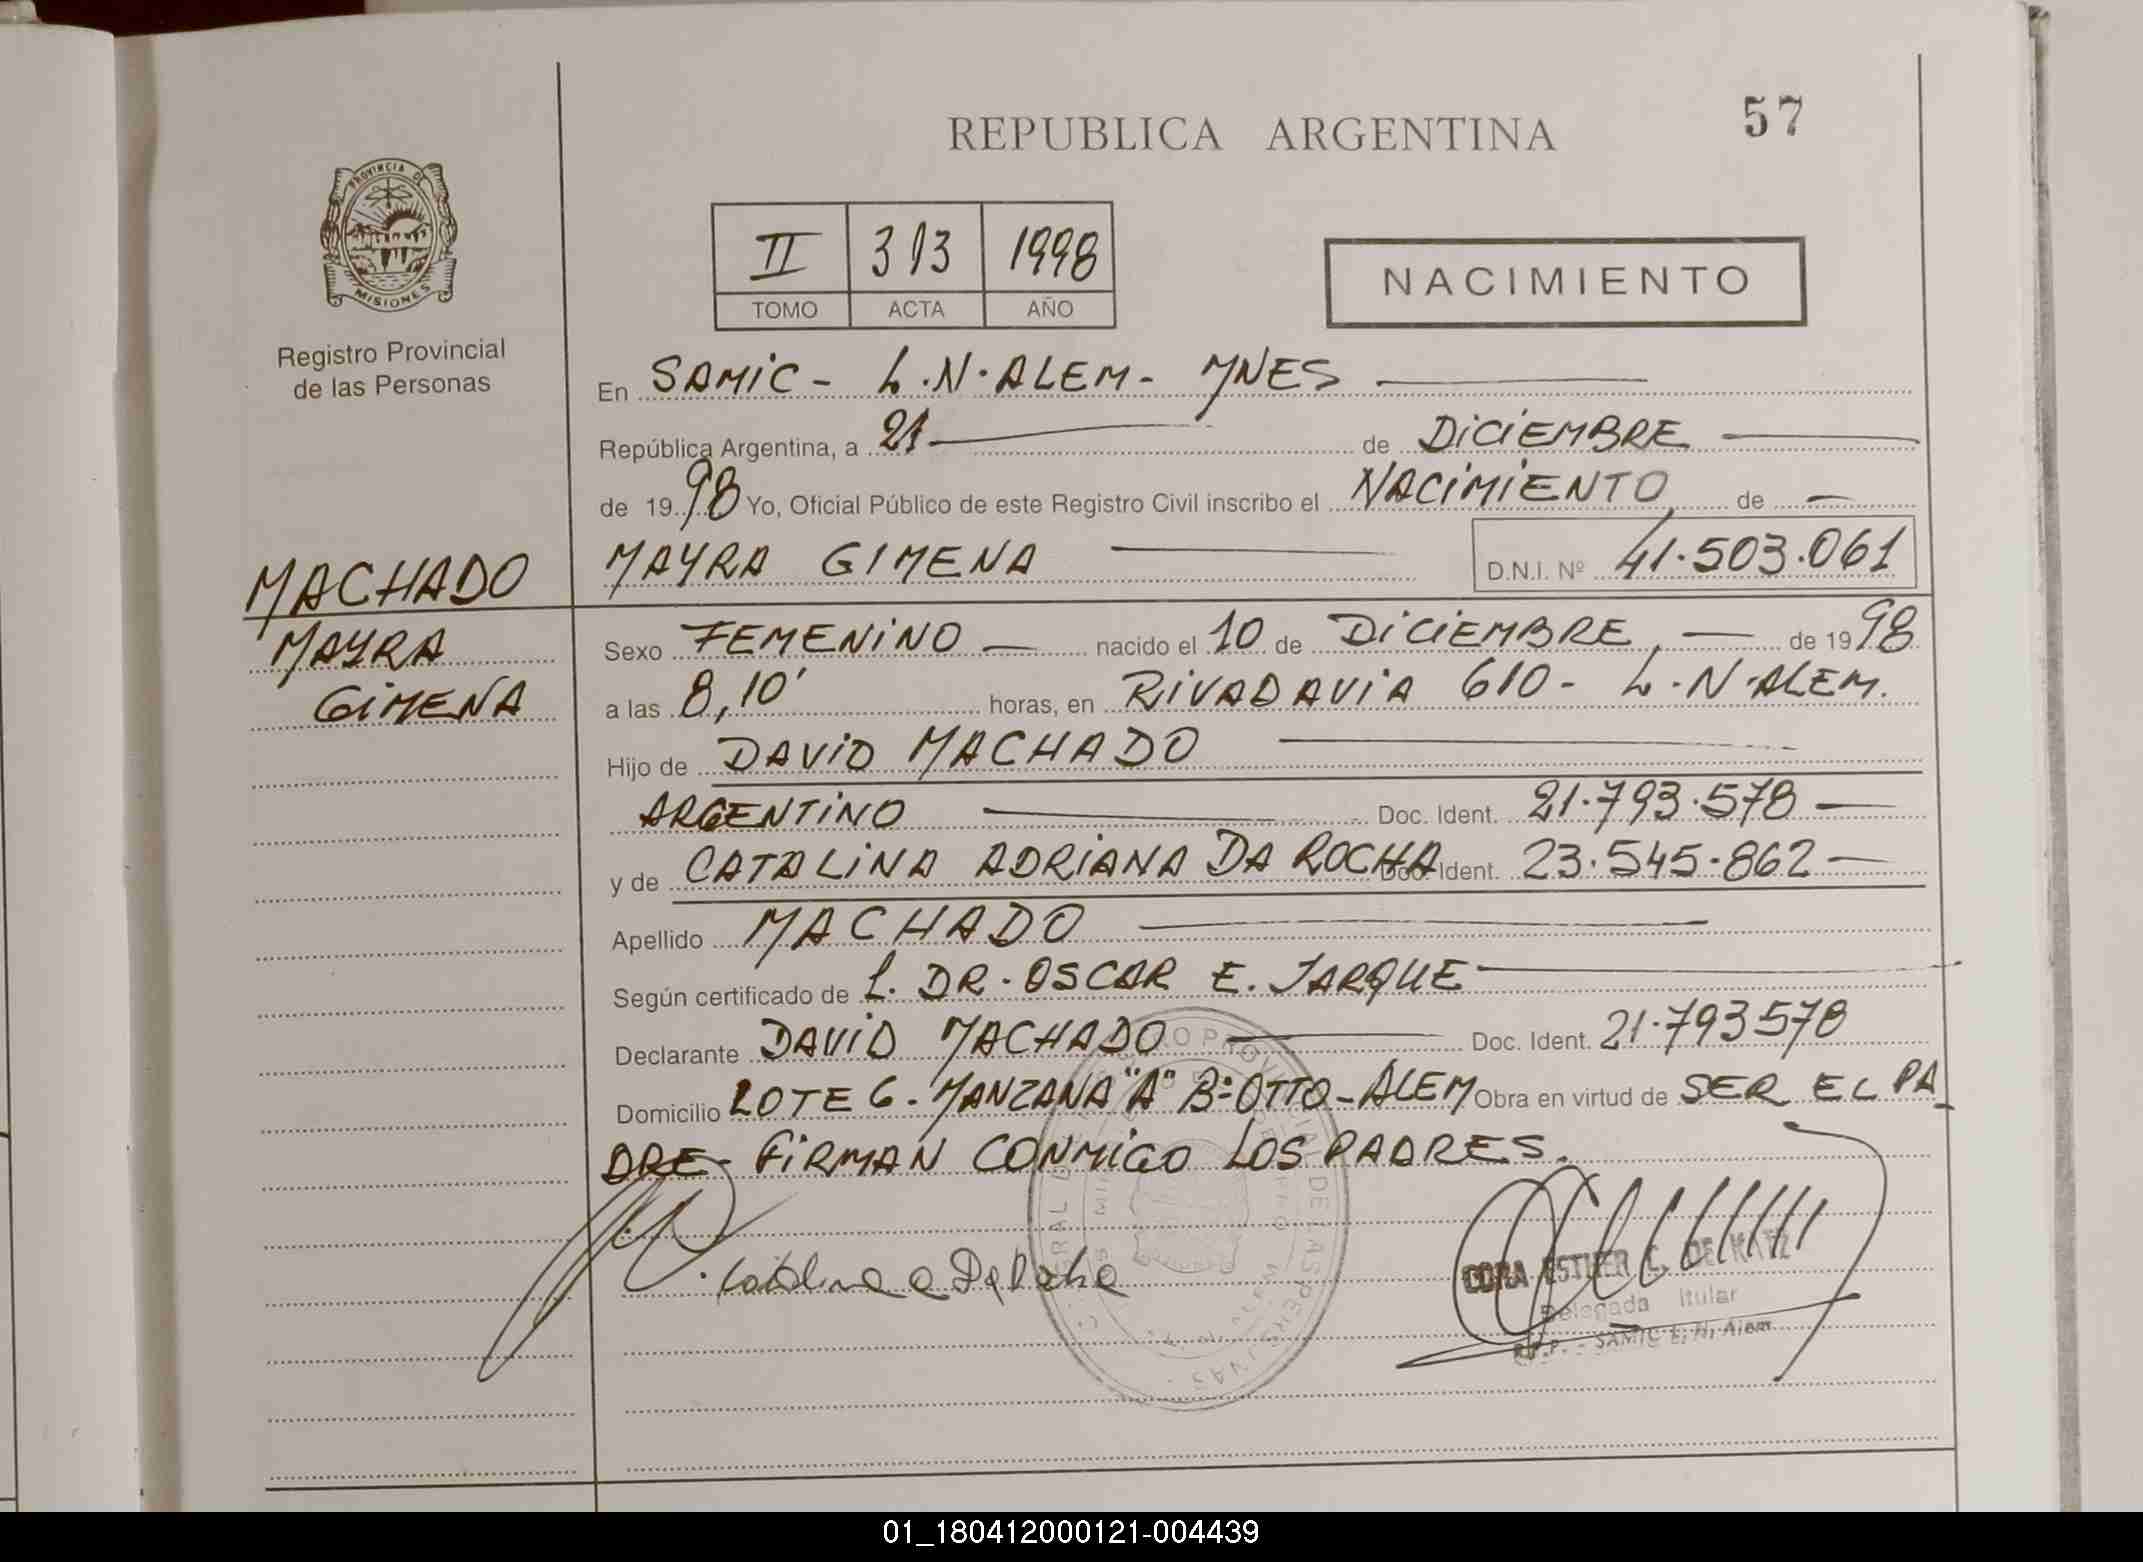 REPUBLICA ARGENTINA
57
PROVINCIA DE
MISIONES
Registro Provincial
de las Personas
II 313 1998
TOMO ACTA AÑO
NACIMIENTO
En SAMIC - L.N.ALEM - MNES
República Argentina, a 21 de DICIEMBRE
de 1998 Yo, Oficial Público de este Registro Civil inscribo el NACIMIENTO de
MACHADO
MAYRA
GIMENA
MAYRA GIMENA D.N.I. Nº 41.503.061
Sexo FEMENINO nacido el 10 de DICIEMBRE de 1998
a las 8,10' horas, en RIVADAVIA 610 - L.N.ALEM.
Hijo de DAVID MACHADO
ARGENTINO Doc. Ident. 21.793.578
y de CATALINA ADRIANA DA ROCHA Doc. Ident. 23.545.862
Apellido MACHADO
Según certificado de L. DR. OSCAR E. JARQUE
Declarante DAVID MACHADO Doc. Ident. 21.793578
Domicilio LOTE 6 - MANZANA "A" Bº OTTO - ALEM Obra en virtud de SER EL PA
DRE - FIRMAN CONMIGO LOS PADRES.
Catalina a Da Rocha
CORA ESTHER C. DE KATZ
Delegada Titular
R.P.P. - SAMIC L. N. Alem
01_180412000121-004439